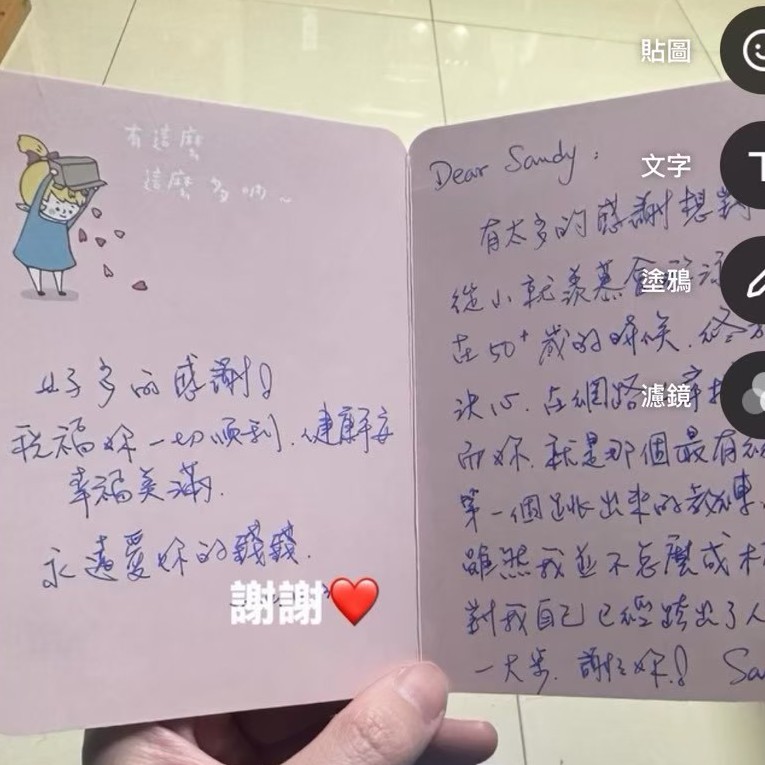 有這麼
這麼多喲~
好多的感謝!
祝福妳一切順利、健康平安
幸福美滿.
永遠愛妳的錢錢.
謝謝❤️
Dear Sandy:
有太多的感謝想對
從小就羨慕會
在50+歲的時候.終於
決心.在網路
而妳.就是那個最有
第一個跳出來的教練.
雖然我並不怎麼成材
對我自己已經踏出了人
一大步.謝謝妳! San
貼圖
文字
塗鴉
濾鏡